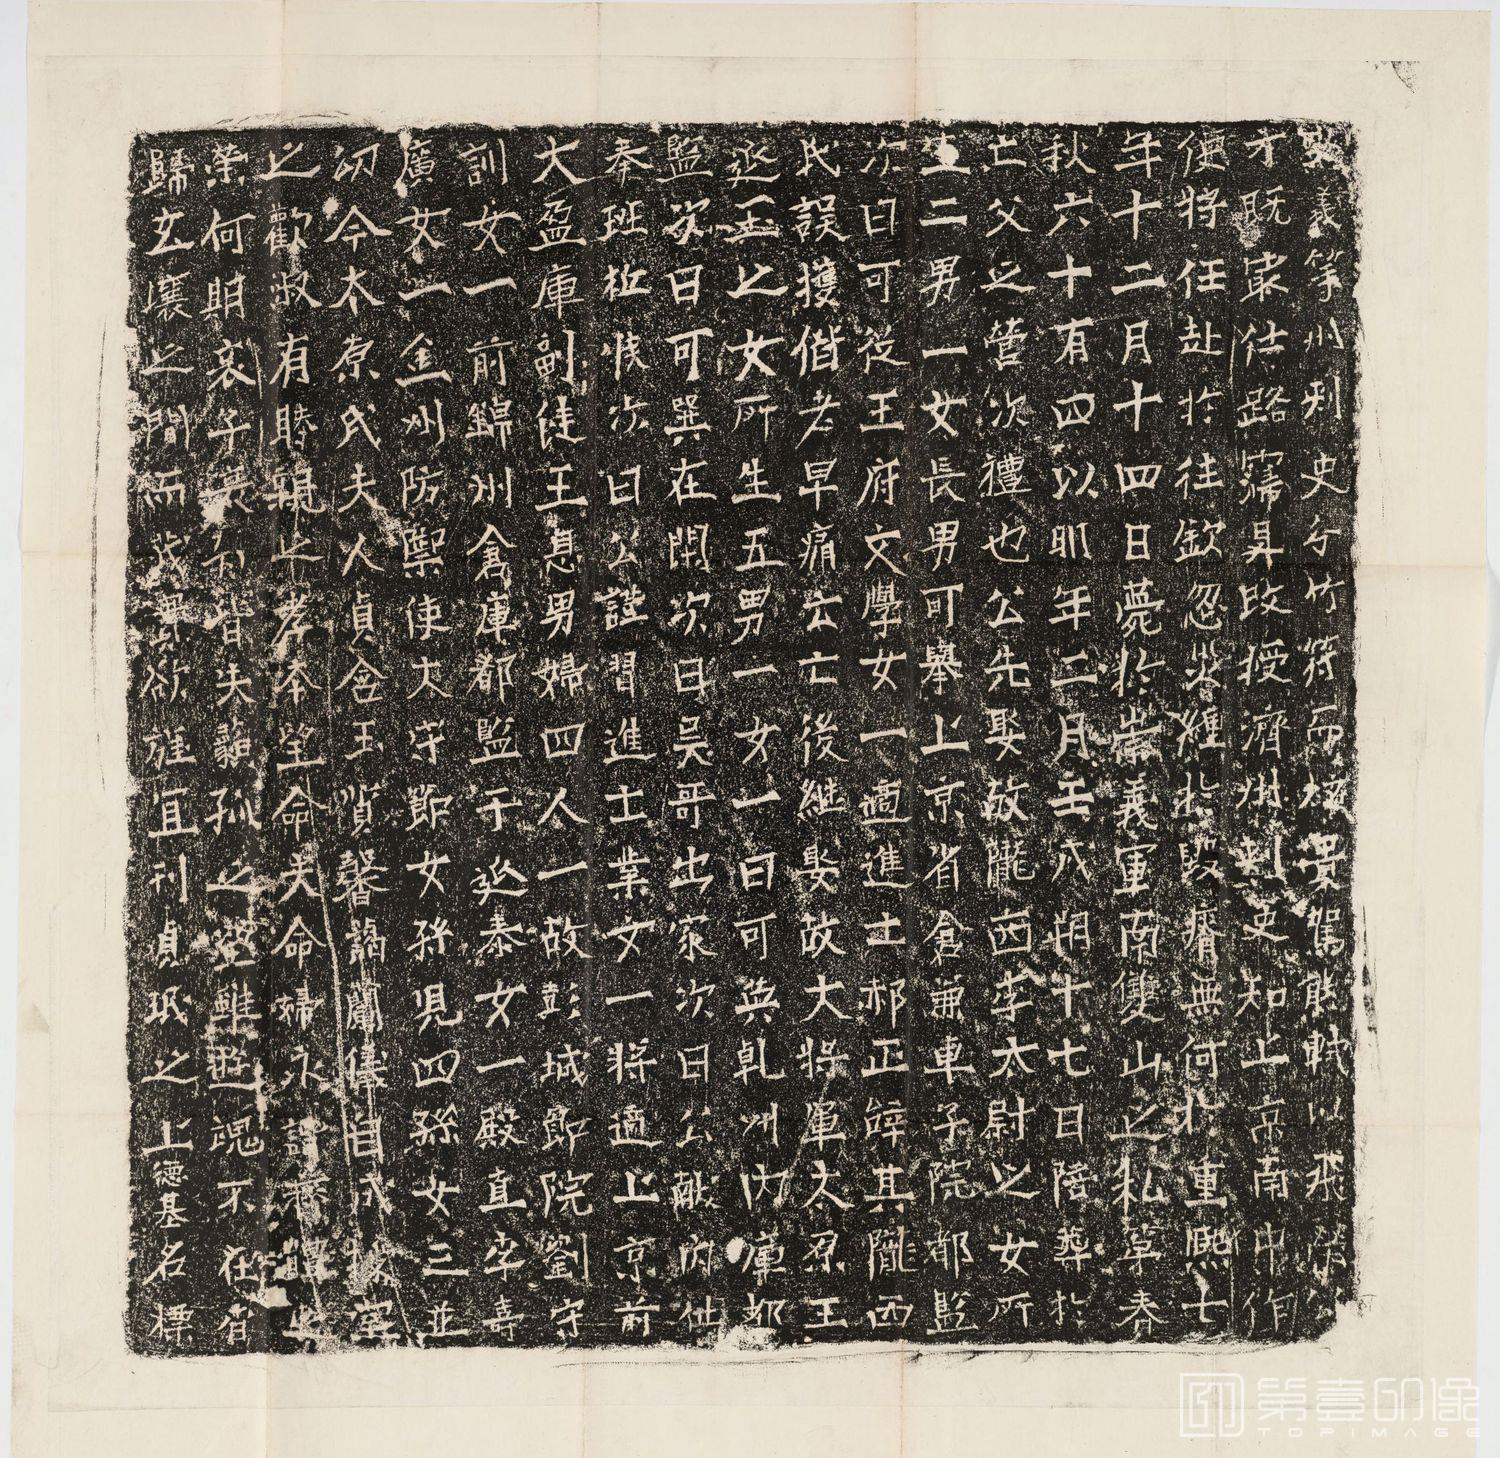 義等州刺史分竹符而
才既寀仕路霈昇改授濟州刺史知上京南中作
使將任赴於往欽忽災纏於段瘠無何於重熙七
年十二月十四日薨於崇義軍南雙山之私第春
秋六十有四以明年二月壬戌朔十七日陪葬於
亡父之營次禮也公先娶故隴西李太尉之女所
生二男一女長男可舉上京省倉兼車子院都監
次曰可後王府文學女一適進士郝正辭其隴西
氏誤擭偕老早痛云亡後継娶故大將軍太原王
延玉之女所生五男一女一曰可與乹州內庫都
監次曰可巽在閑次曰吴哥出家次曰公献閤
奉班祗候次曰公謹習進士業女一將適上京前
大盈庫副使王息男婦四人一故彭城節院劉守
訓女一前錦州倉庫都監于延泰女一殿直李壽
廣女一金州防禦使大守節女孫兒四孫女三並
幼今太原氏夫人貞含玉質馨藹蘭儀自
之歡淑有睦親之孝本望命夫命婦永
榮何期哀子皆失孤之雖遊魂不
歸玄壤之間而無宜刊貞珉之上德基名標
第壹印像
TOPIMAGE